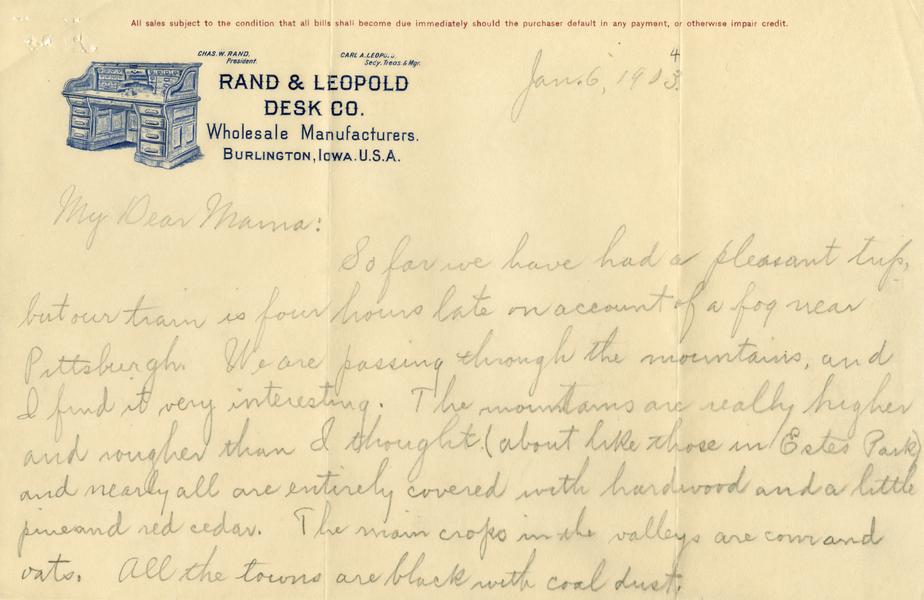 All sales subject to the condition that all bills shall become due immediately should the purchaser default in any payment, or otherwise impair credit.
CHAS. W. RAND. President.
CARL A. LEOPOLD. Secy. Treas. & Mgr.
RAND & LEOPOLD
DESK CO.
Wholesale Manufacturers.
BURLINGTON, IOWA. U.S.A.
4
Jan. 6, 1903.
My Dear Mama:
So far we have had a pleasant trip,
but our train is four hours late on account of a fog near
Pittsburgh. We are passing through the mountains, and
I find it very interesting. The mountains are really higher
and rougher than I thought (about like those in Estes Park)
and nearly all are entirely covered with hardwood and a little
pine and red cedar. The main crops in the valleys are corn and
oats. All the towns are black with coal dust.